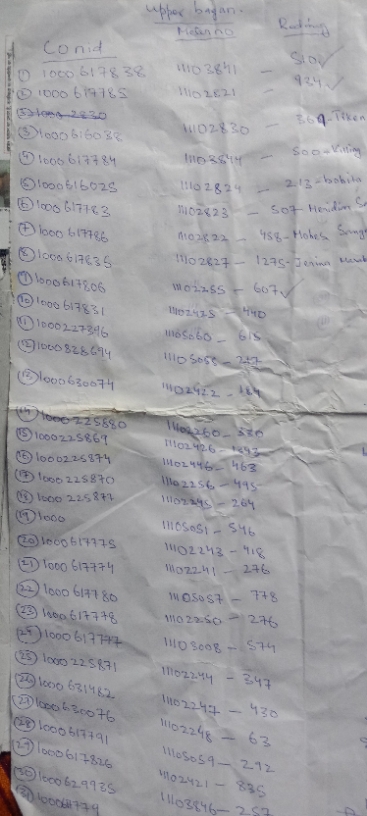 Upper bagan.
Conid Meter no Reading
① 1000617838 11103841 - 510 ✓
② 1000617785 11102821 - 934 ✓
③ 1000616038 11102830 - 369-Tiken
④ 1000617784 11103844 - 500-Killing
⑤ 1000616025 11102824 - 213-babita
⑥ 1000617783 11102823 - 507
⑦ 1000617786 11102822 - 458-Mohes
⑧ 1000617835 11102827 - 1275-
⑨ 1000617806 11102255 - 607 ✓
⑩ 1000617831 11102425 - 440
⑪ 1000227396 11105060 - 615
⑫ 1000828694 11105058 -
⑬ 1000630074 11102422 - 184
⑭ 1000225880 11102260 -
⑮ 1000225869 11102426 - 1093
⑯ 1000225874 11102446 - 463
⑰ 1000225870 11102256 - 495
⑱ 1000225877 11102245 - 264
⑲ 1000 11105051 - 546
⑳ 1000617775 11102243 - 418
㉑ 1000617774 11102241 - 276
㉒ 1000617780 11105057 - 778
㉓ 1000617778 11102250 - 276
㉔ 1000617777 11103008 - 574
㉕ 1000225871 11102244 - 347
㉖ 1000631482 11102247 - 430
㉗ 1000630076 11102248 - 63
㉘ 1000617791 11105059 - 292
㉙ 1000617826 11102421 - 835
㉚ 1000629935 11103846 - 257